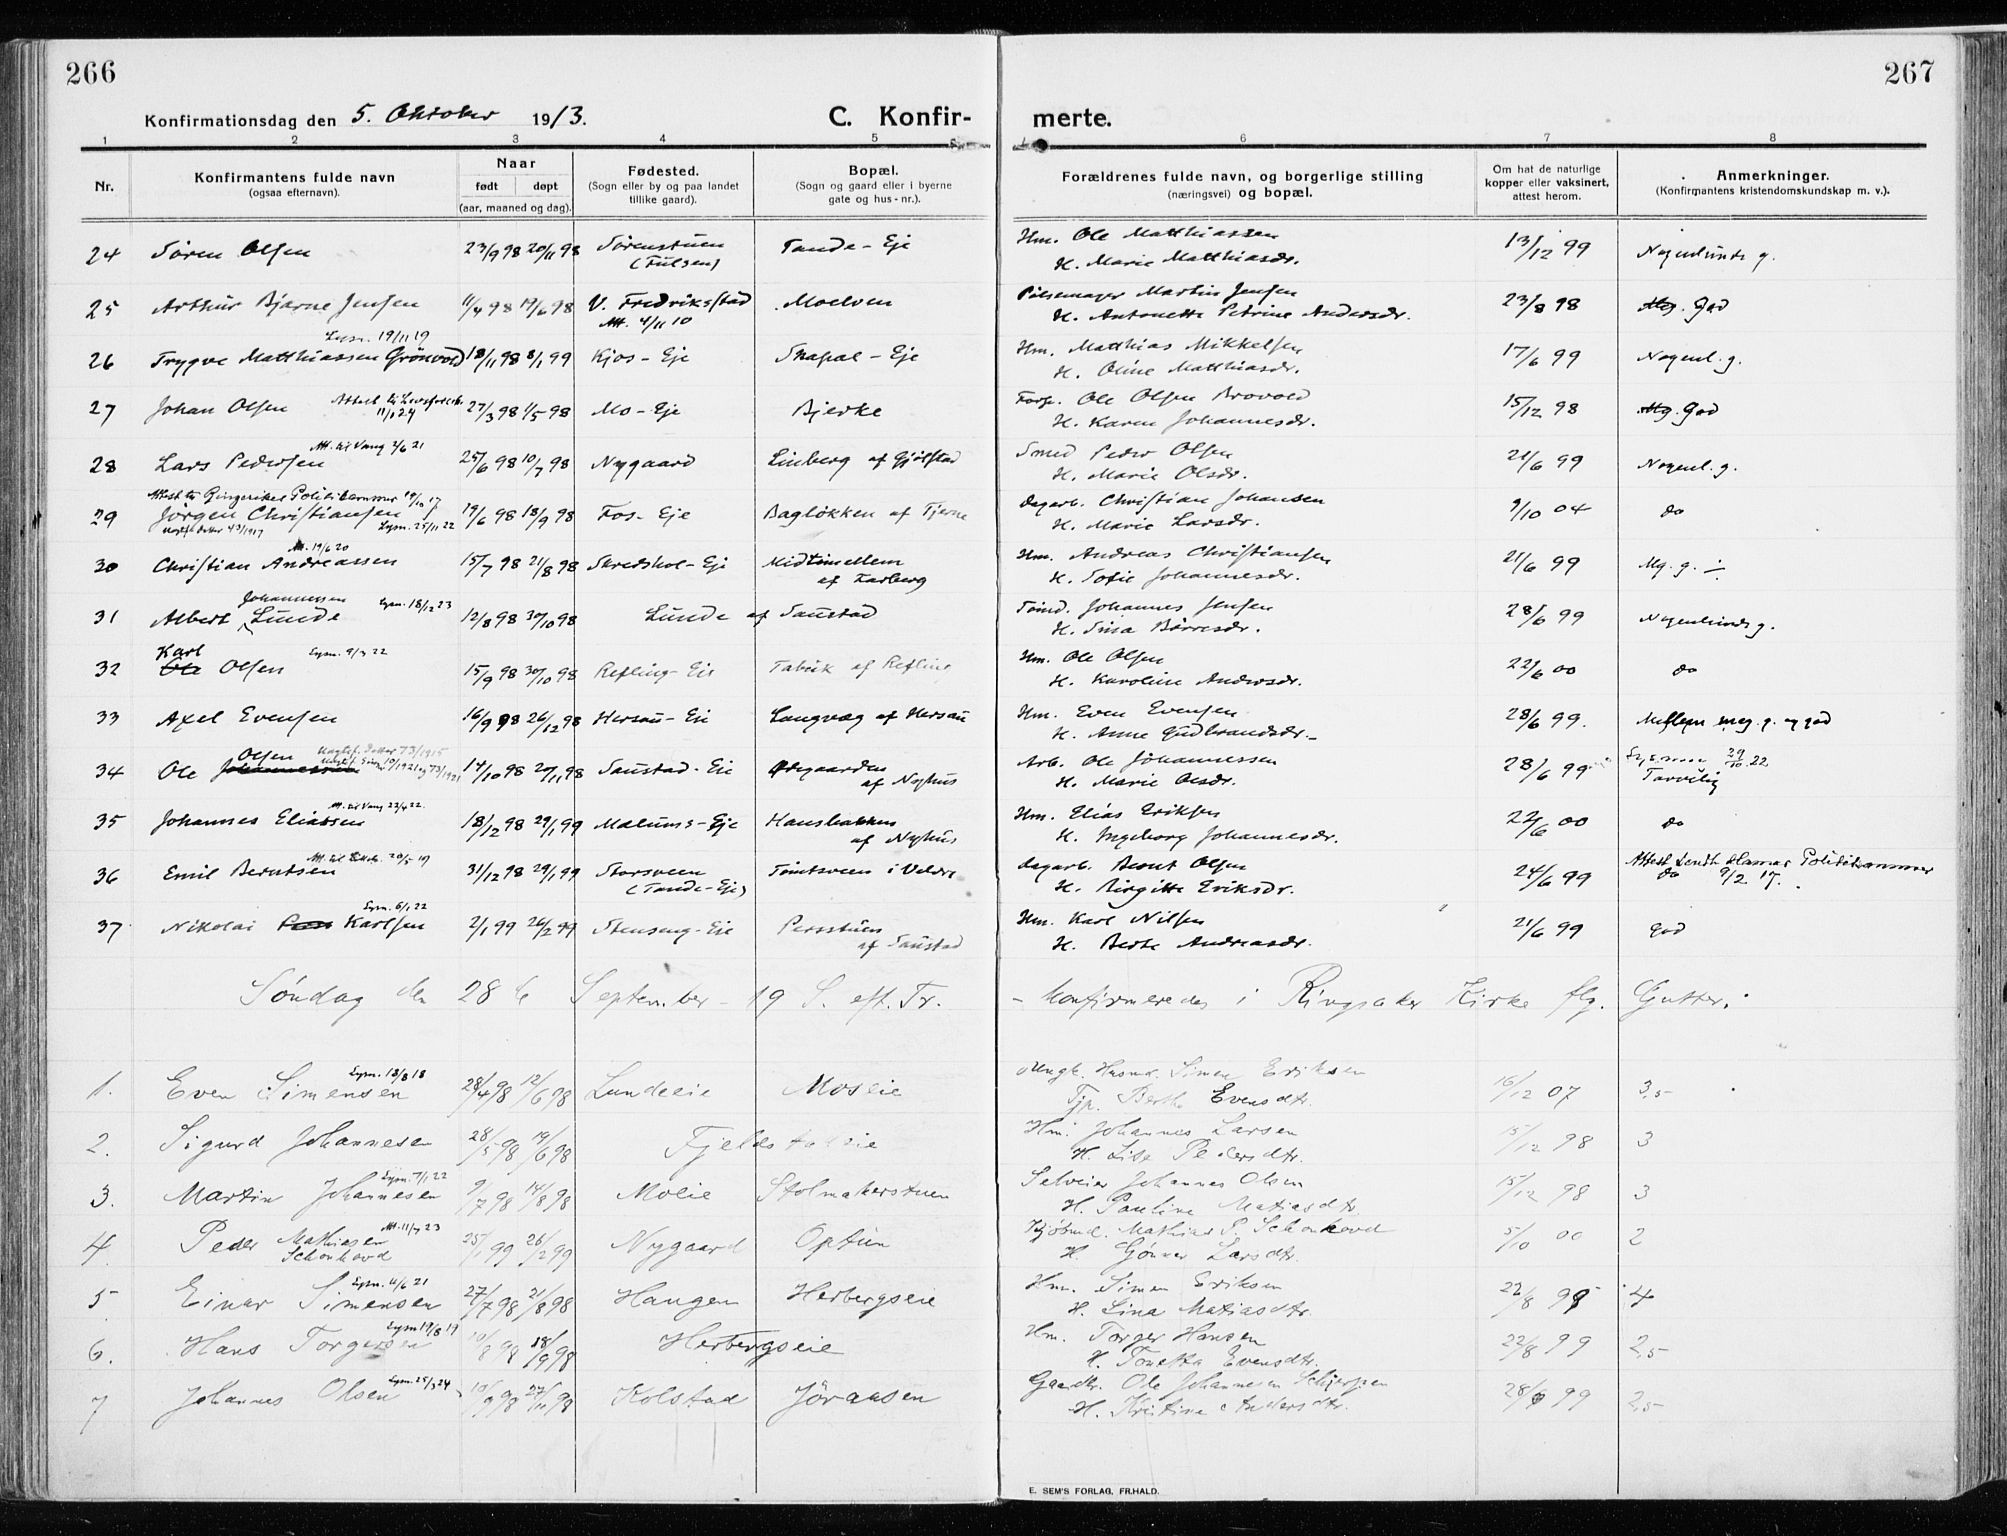 266
267
Konfirmationsdag den 5. Oktober 1913.
C. Konfirmerte.
1 2 3 4 5 6 7 8
Nr.
Konfirmantens fulde navn
(ogsaa efternavn).
Naar
født døpt
(aar, maaned og dag).
Fødested.
(Sogn eller by og paa landet
tillike gaard).
Bopæl.
(Sogn og gaard eller i byerne
gate og hus-nr.).
Forældrenes fulde navn, og borgerlige stilling
(næringsvei) og bopæl.
Om hat de naturlige
kopper eller vaksinert,
attest herom.
Anmerkninger.
(Konfirmantens kristendomskundskap m. v.).
24 Søren Olsen 23/9 98 20/11 98 Sørenstuen (Fulsen) Tande - Eje
Hm. Ole Matthiassen
H. Marie Matthiasdr. 13/12 99 Nogenlunde g.
25 Arthur Bjarne Jensen 11/4 98 19/6 98 V. Fredriksstad Att. 4/11 10 Moelven
Pølsemager Martin Jensen
H. Antonette Petrine Andersdr. 23/8 98 Mg. God
Lysn. 19/11 19
26 Trygve Matthiassen Grönvold 18/11 98 8/1 99 Kjos - Eje Skapal - Eje
Hm. Matthias Mikkelsen
H. Oline Matthiasdr. 17/6 99 Nogenl. g.
27 Johan Olsen 11/1 24 27/3 98 1/5 98 Mo - Eje Bjerke
Forp. Ole Olsen Brovold
H. Karen Johannesdr. 15/12 98 Mg. God
Att. til Vang 2/6 21
28 Lars Pedersen 25/6 98 10/7 98 Nygaard Linberg af Gjølstad
Smed Peder Olsen
H. Marie Olsdr. 21/6 99 Nogenl. g.
Attest til Ringerikes Politikammer 19/10 17
29 Jørgen Christiansen Lysn. 25/11 22 19/6 98 18/9 98 Fos - Eje Bagløkken af Tjerne
Uegte datter 43/1917
Dagarb. Christian Johansen
H. Marie Larsdr. 9/10 04 do
Att. 19/6 20
30 Christian Andreassen 15/7 98 21/8 98 Skredshol - Eje Midtimellem af Farberg
Hm. Andreas Christiansen
H. Sofie Johannesdr. 21/6 99 Mg. g. ÷
31 Albert Johannessen Lunde Lysn. 18/12 23 12/8 98 30/10 98 Lunde af Saustad
Tømd. Johannes Jensen
H. Sina Børresdr. 28/6 99 Nogenlunde g.
32 Karl Ole Olsen Lysn. 9/3 22 15/9 98 30/10 98 Refling - Eie Fabrik af Refling
Hm. Ole Olsen
H. Karoline Andersdr. 22/6 00 do
33 Axel Evensen 16/9 98 26/12 98 Hersau - Eie Langvæg af Hersau
Hm. Even Evensen
H. Anne Gudbrandsdr. 28/6 99. Mellem meg. g. og god
34 Ole Olsen Johannessen 14/10 98 20/11 98 Saustad - Eie Ødegaarden af Nyhus
Uegtef. datter 73/1915
Arb. Ole Johannessen
H. Marie Olsdr. 28/6 99 Lysn. 29/10 22 Tarvelig
Att. til Vang 23/4 22.
35 Johannes Eliassen 18/12 98 29/1 99 Mælums - Eje Hansbakken af Nyhus
Hm. Elias Eriksen
H. Ingeborg Johannesdr. 22/6 00 do
36 Emil Berntsen 31/12 98 29/1 99 Storsveen (Tande - Eje) Tomtsveen i Veldre
Dagarb. Bernt Olsen
H. Birgitte Eriksdr. 24/6 99 Attest sendt Hamar Politikammer do 9/2 17.
Lysn. 6/1 22
37 Nikolai Karlsen 2/1 99 26/2 99 Stenseng - Eie Persstuen af Saustad
Hm. Karl Nilsen
H. Berte Andreasdr. 21/6 99 god
Søndag den 28de September - 19 S. eft. Tr. - konfirmeredes i Ringsaker Kirke flg. Gutter:
Lysn. 18/8 18
1. Even Simensen 28/4 98 12/6 98 Lundeeie Moseie
Ungk. Husmd. Simen Eriksen
Tjp. Berthe Evensdtr. 16/12 07 3,5
2. Sigurd Johannesen 28/5 98 19/6 98 Fjeldstadeie
Hm. Johannes Larsen
H. Lise Pedersdtr. 15/12 98 3
Lysn. 7/1 22
3. Martin Johannesen 9/7 98 14/8 98 Moeie Stolmakerstuen
Selveier Johannes Olsen
H. Pauline Matiasdtr. 15/12 98 3
Att. 11/7 23
4. Peder Mathiesen Schonhovd 25/1 99 26/2 99 Nygaard Optun
Kjøbmd. Mathias P. Schonhovd
H. Gønner Larsdtr. 5/10 00 2
Lysn. 4/6 21
5 Einar Simensen 27/7 98 21/8 98 Haugen Herbergseie
Hm. Simen Eriksen
H. Lina Matiasdtr. 22/8 99 4
Lysn 19/8 19
6. Hans Torgersen 10/8 98 18/9 98 Herbergseie
Hm. Torger Hansen
H. Tonetta Evensdtr. 22/8 99 2,5
Lysn. 25/3 24
7 Johannes Olsen 10/9 98 27/11 98 Kolstad Jöransen
Gaardbr. Ole Johannesen Schjerpen
H. Kristine Andersdtr. 28/6 99 2,5
E. SEM'S FORLAG, FR.HALD.